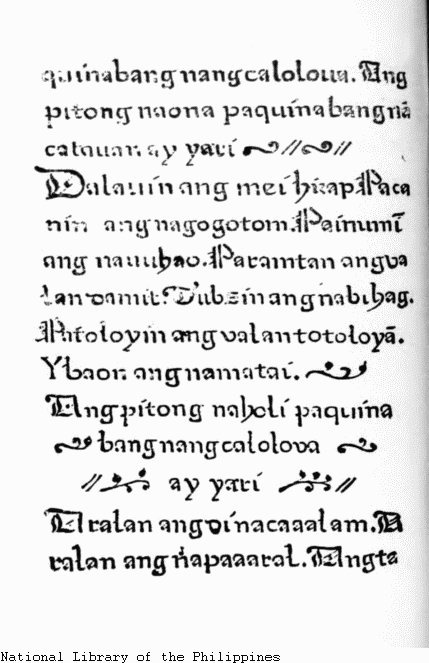 quinabang nang caloloua. Ang
pitong naona paquinabang nā
catauan ay yari
Dalauin ang mei hirap. Paca
nin ang nagogotom. Painumī
ang nauuhao. Paramtan ang ua
lan damit. Tubsin ang nabihag.
Patoloyin ang ualan totoloyā.
Ybaon ang namatai.
Ang pitong naholi paquina
bang nang calolova
ay yari
Aralan ang dinacaaalam. A
ralan ang napaaaral. Ang ta
National Library of the Philippines